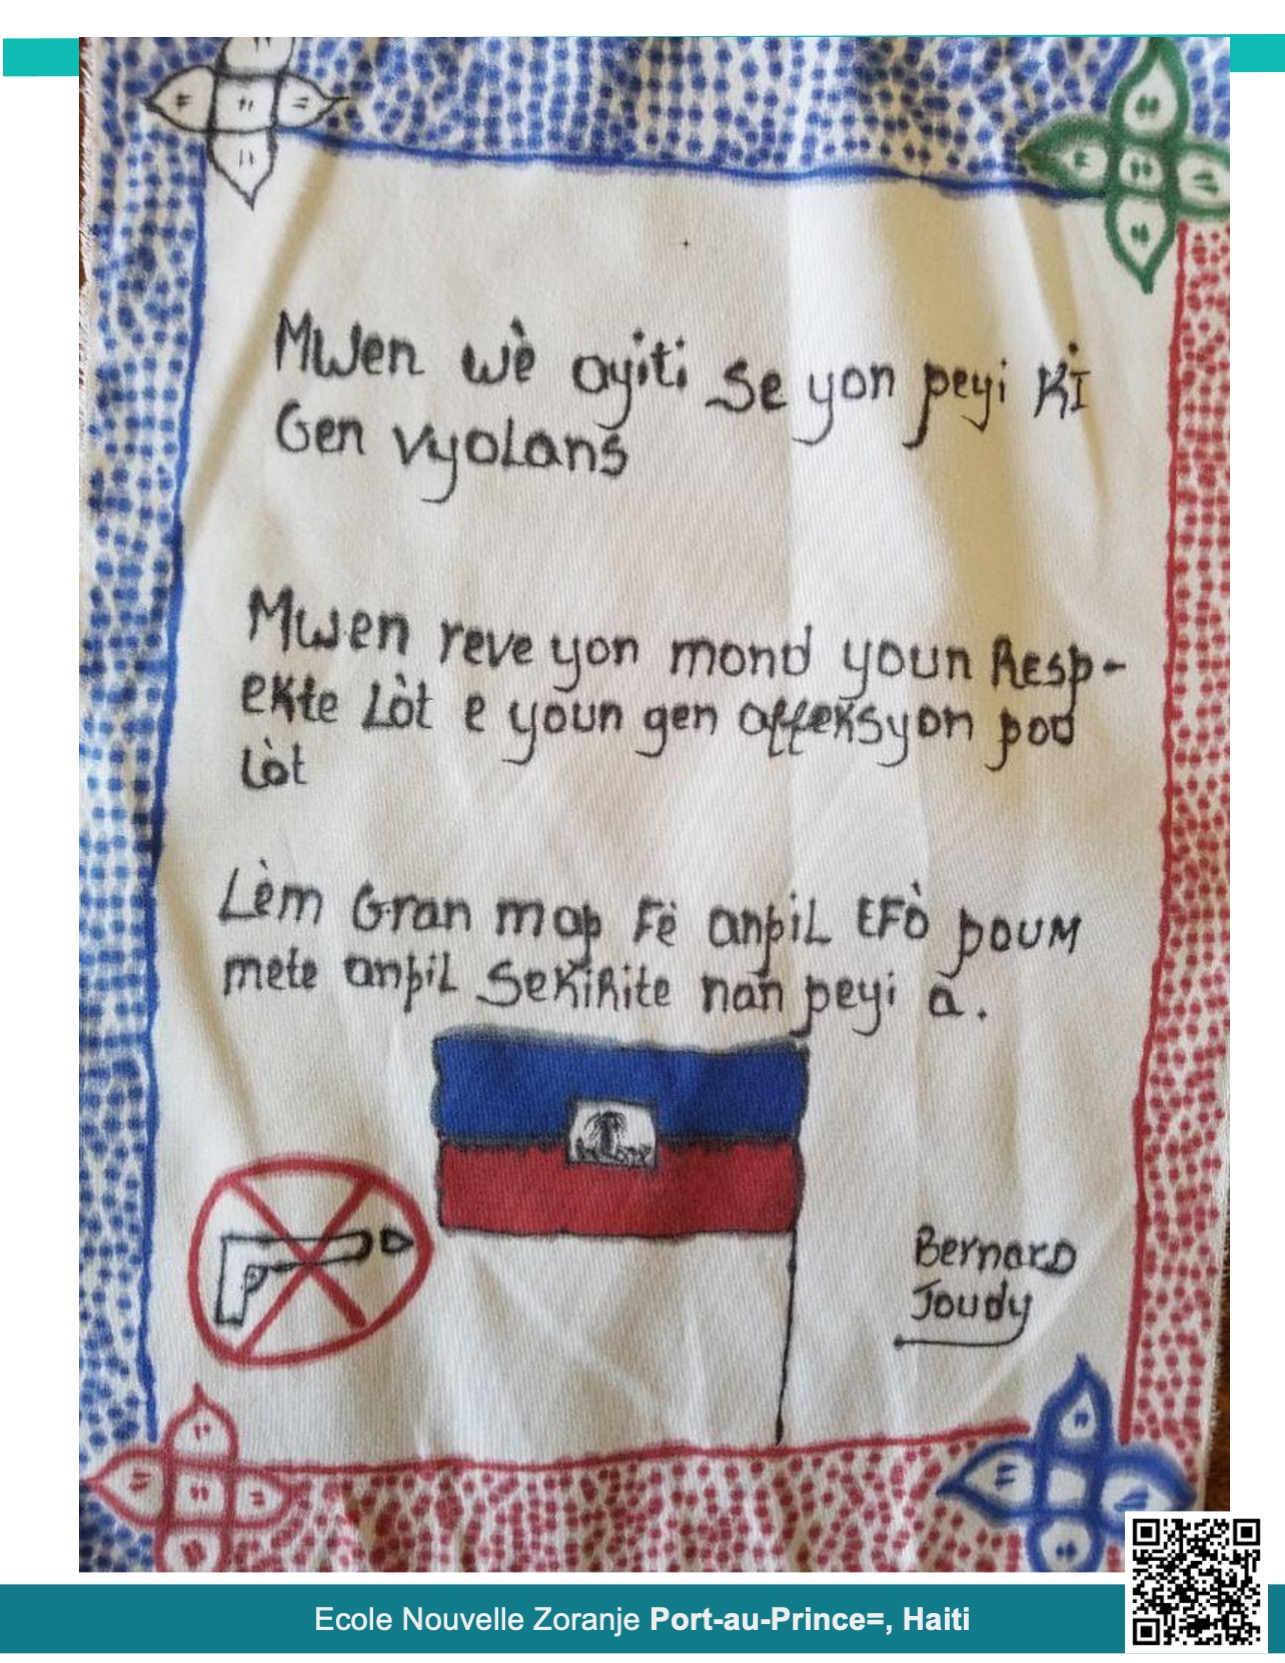 Mwen wè ayiti se yon peyi Ki
Gen vyolans
Mwen reve yon mond youn Resp-
ekte Lòt e youn gen affeksyon pou
Lòt
Lèm Gran map Fè anpiL EFÒ pouM
mete anpiL SeKiRite nan peyi a.
Bernard
Joudy
Ecole Nouvelle Zoranje Port-au-Prince=, Haiti